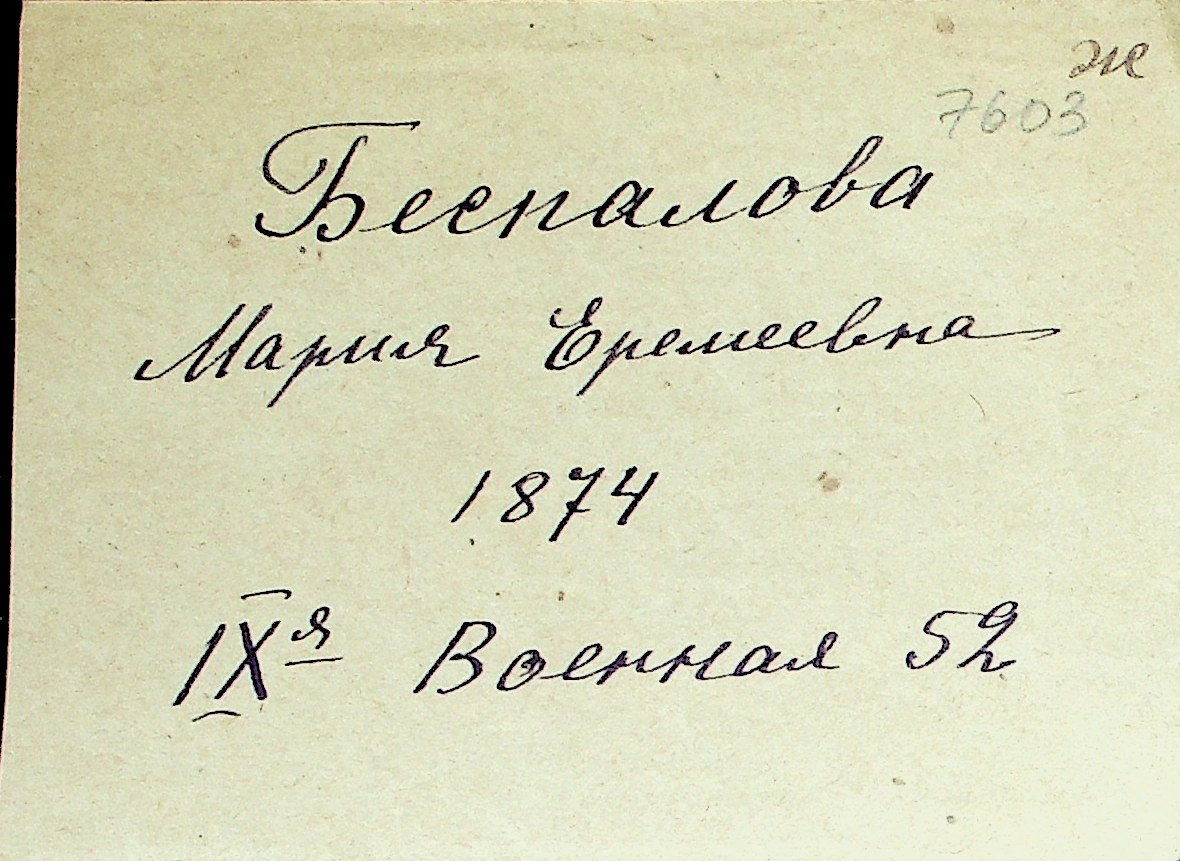 ж
7603
Беспалова
Мария Еремеевна
1874
IX я Военная 52